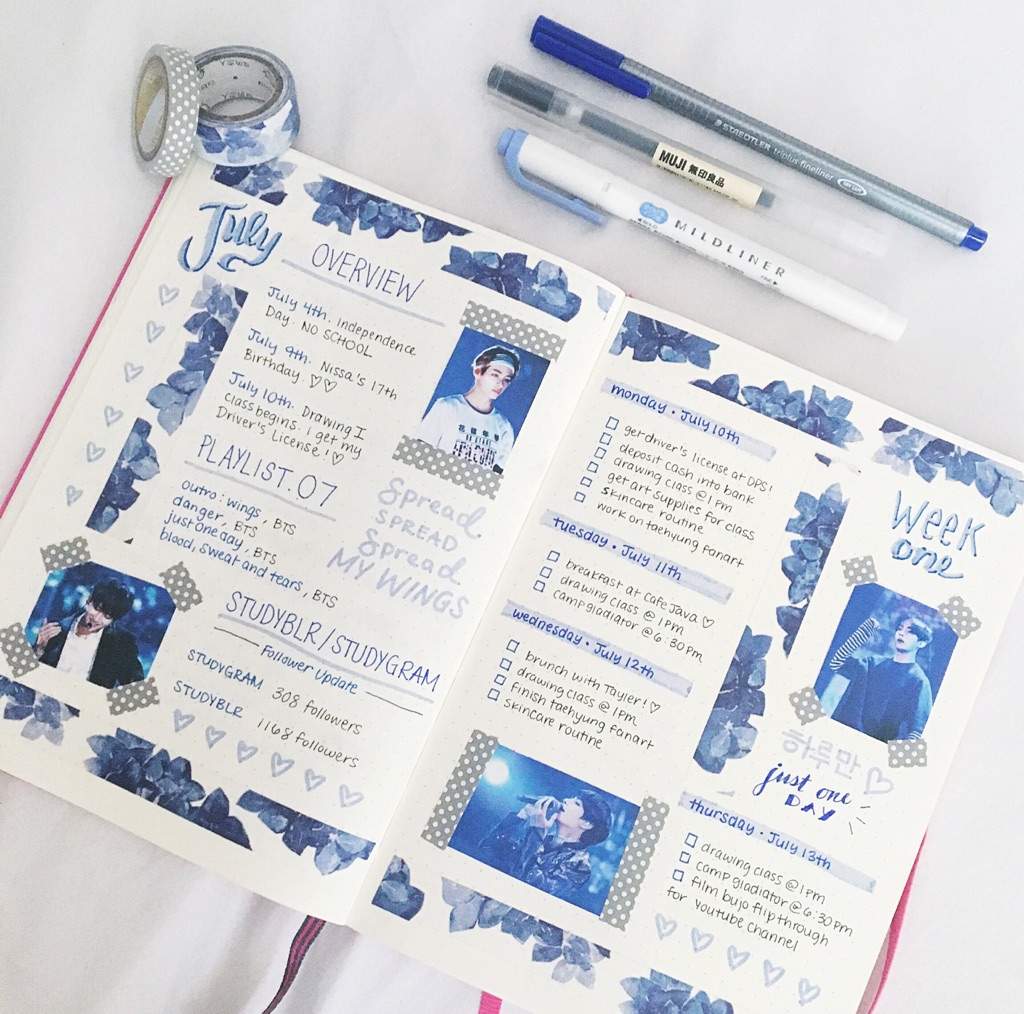 STAEDTLER triplus fineliner
MUJI 無印良品
MILDLINER
July
OVERVIEW
July 4th. Independence
Day. NO SCHOOL
July 9th. Nissa's 17th
Birthday. ♡♡
July 10th. Drawing
class begins. I get my
Driver's License! ♡
PLAYLIST.07
outro: wings, BTS
danger, BTS
just one day, BTS
blood, sweat and tears, BTS
Spread
SPREAD
Spread
MY WINGS
STUDYBLR/STUDYGRAM
Follower Update
STUDYGRAM 308 followers
STUDYBLR 1168 followers
monday • July 10th
get driver's license at DPS!
deposit cash into bank
drawing class @ 1 pm
get art supplies for class
skincare routine
work on taehyung fanart
tuesday • July 11th
breakfast at Cafe Java ♡
drawing class @ 1 pm
camp gladiator @ 6:30 pm
wednesday • July 12th
brunch with Tayler! ♡
drawing class @ 1 pm
finish taehyung fanart
skincare routine
WEEK
one
하루만
just one
DAY
thursday • July 13th
drawing class @ 1 pm
camp gladiator @ 6:30 pm
film bujo flipthrough
for youtube channel